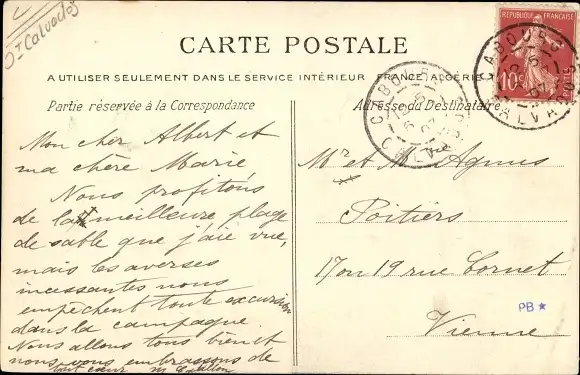 Dt Calvados
CARTE POSTALE
A UTILISER SEULEMENT DANS LE SERVICE INTÉRIEUR FRANCE, ALGÉRIE
Partie réservée à la Correspondance
Mon cher Albert et
ma chère Marie,
Nous profitons
de la meilleure plage
de sable que j'aie vue,
mais les averses
incessantes nous
empêchent toute excursion
dans la campagne.
Nous allons tous bien et
nous vous embrassons de
tout cœur M
Adresse du Destinataire
Mr et Mme Agnus
Poitiers
17 ou 19 rue Cornet
Vienne
PB
RÉPUBLIQUE FRANÇAISE
10c
POSTES
CABOURG
07
CALVADOS
CABOURG
07
CALVADOS